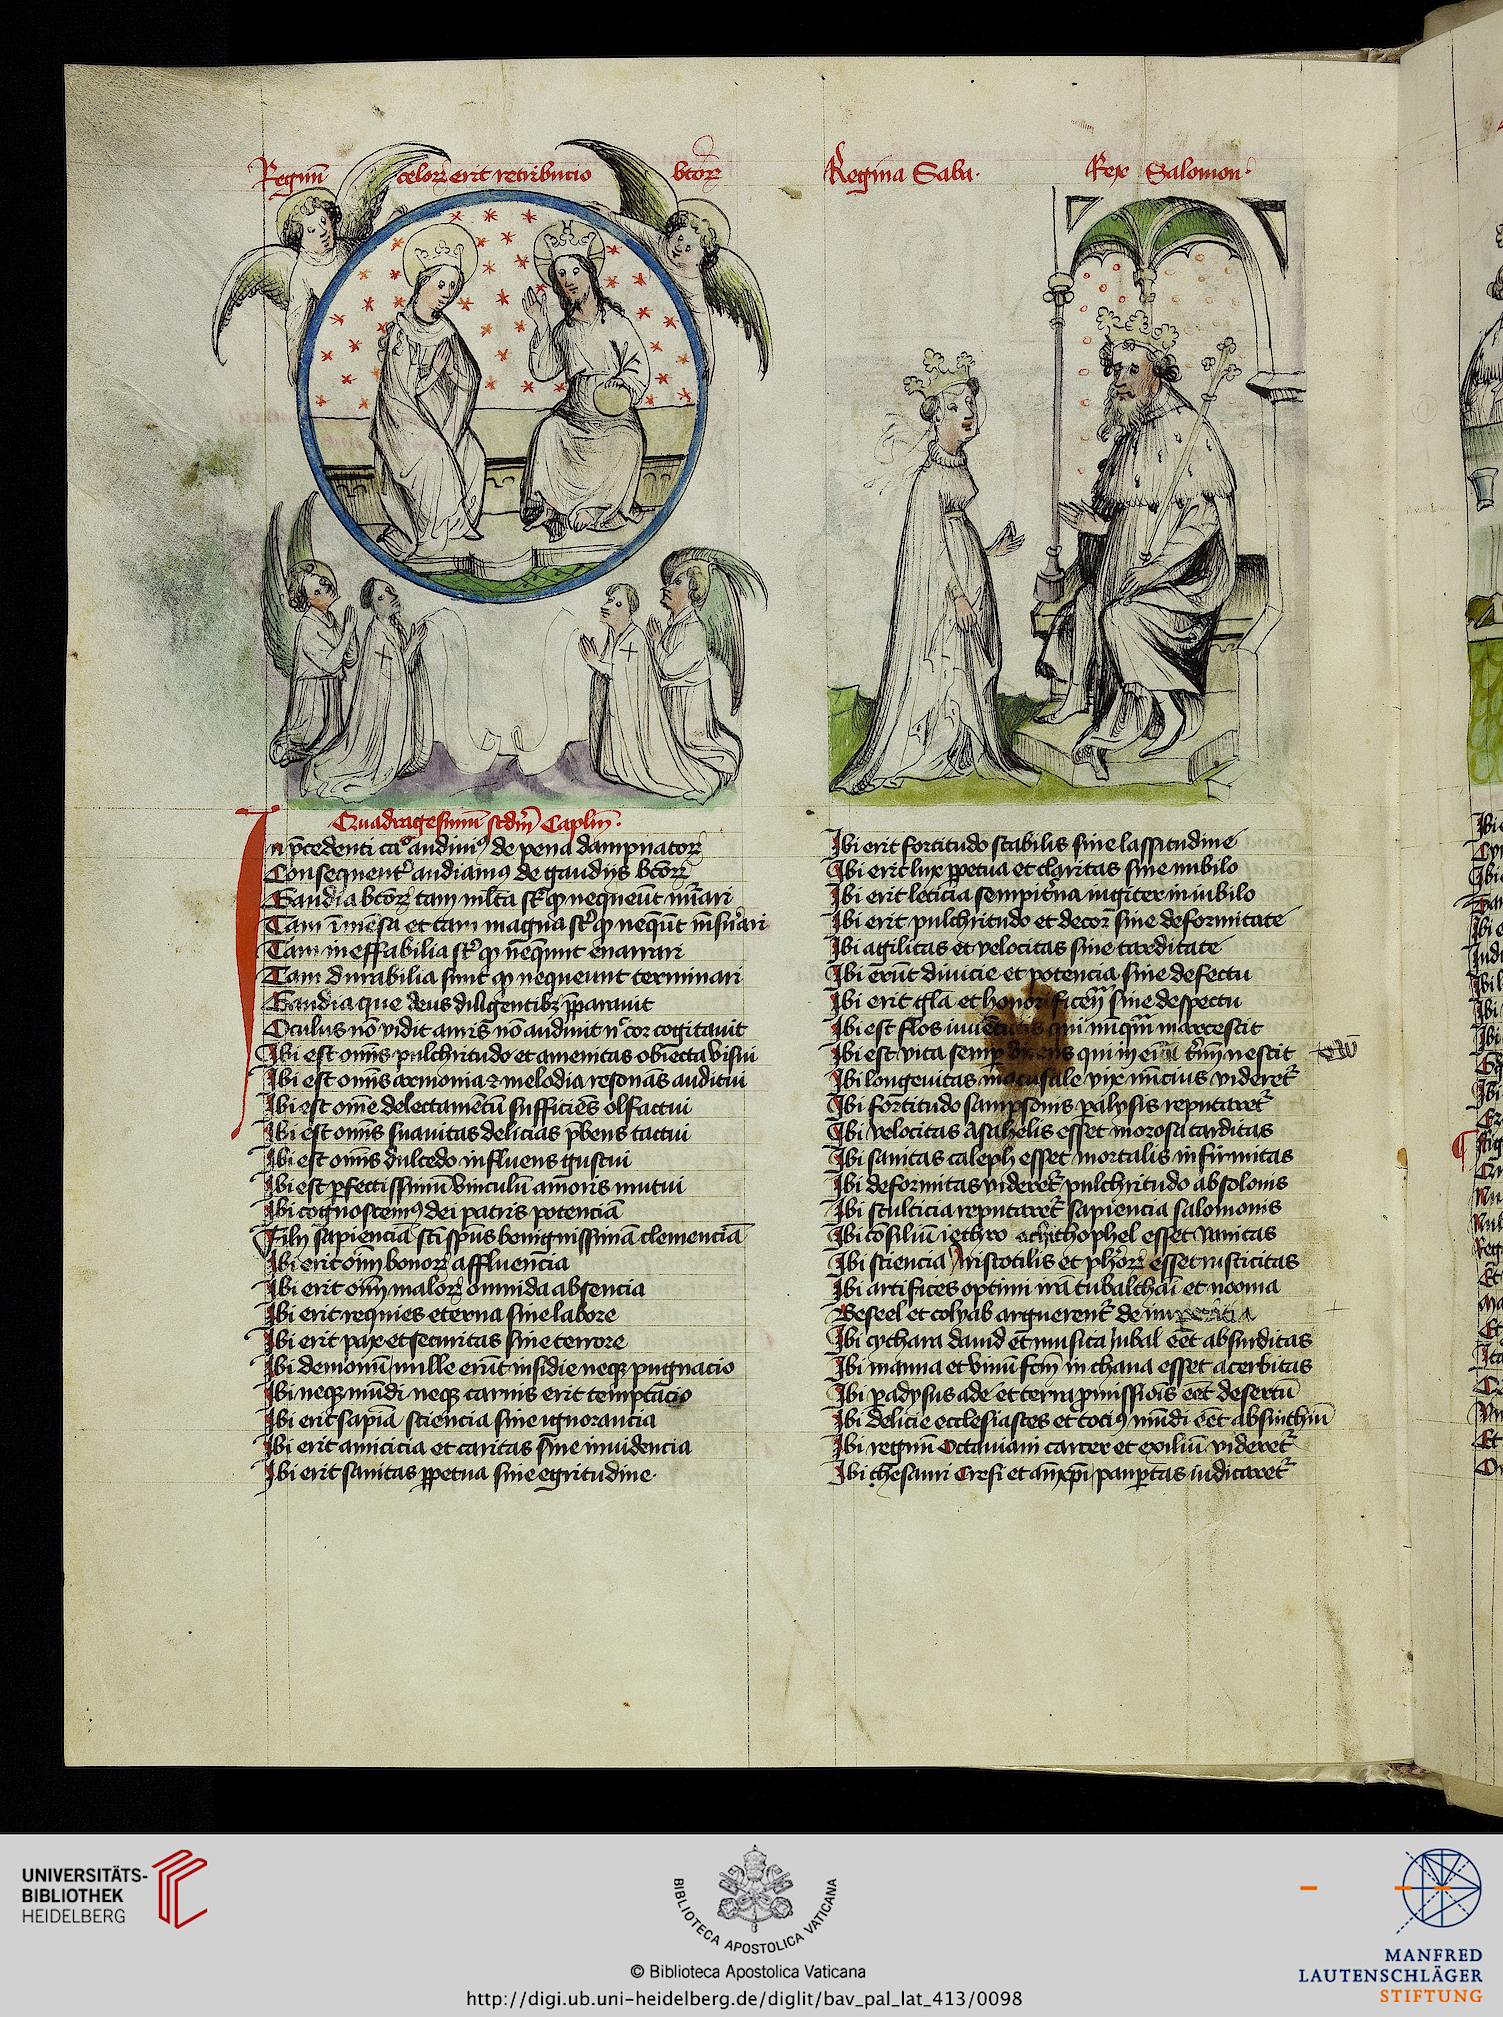 Regnū celoꝝ erit retribucio btōꝝ
Quadragesimū scdm̄ Caplm̄.
In p̄cedenti caº audiuimꝰ de pena dampnatoꝝ
Consequent᷑ audiamꝰ de gaudijs btōꝝ
Gaudia btōꝝ tam ml̄ta st᷑ qꝫ nequeūt nūari
Tam īmēsa et tam magna st᷑ qꝫ neq̄ūt mēsurari
Tam ineffabilia st᷑ qꝫ neq̄unt enarrari
Tam durabilia sunt qꝫ nequeunt terminari
Gaudia que deus diligentibꝫ p̄parauit
Oculus nō vidit auris nō audiuit nͨ cor cogitauit
Ibi est om̄s pulchritudo et amenitas obiecta visui
Ibi est om̄s armonia ⁊ melodia resonās auditui
Ibi est om̄e delectamētū sufficiēs olfactui
Ibi est om̄s suauitas delicias p̄bens tactui
Ibi est om̄s dulcedo influens gustui
Ibi est ꝑfectissimū vinculū amoris mutui
Ibi cognoscemꝰ dei patris potenciā
Filij sapienciā sc̄i sp̄us benignissimā clemenciā
Ibi erit oīm bonoꝝ affluencia
Ibi erit oīm maloꝝ omnida absencia
Ibi erit requies eterna sine labore
Ibi erit pax et securitas sine terrore
Ibi demonū nulle erūt insidie neqꝫ pugnacio
Ibi neqꝫ mūdi neqꝫ carnis erit temptacio
Ibi erit sapīa sciencia sine ignorancia
Ibi erit amicicia et caritas sine inuidencia
Ibi erit sanitas ꝑpetua sine egritudine
Regina Saba.
Rex Salomon.
Ibi erit fortitudo stabilis sine lassitudine
Ibi erit lux ꝑpetua et claritas sine nubilo
Ibi erit leticia sempit᷑na iugiter in iubilo
Ibi erit pulchritudo et decor sine deformitate
Ibi agilitas et velocitas sine tarditate
Ibi erūt diuicie et potencia sine defectu
Ibi erit gl̄a et honorificen sine despectu
Ibi est flos iuuētutis qui nūqm̄ marcescit
Ibi est vita semꝑ qui t᷑mīu nescit
Ibi longeuitas matusale vix nūcius videret᷑
Ibi fortitudo sampsonis paralysis reputaret᷑
Ibi velocitas Asahelis esset morosa tarditas
Ibi sanitas caleph esset mortalis infirmitas
Ibi deformitas videret᷑ pulchritudo absolonis
Ibi stulticia reputaret᷑ sapiencia salomonis
Ibi cōsiliū iethro achithophel esset vanitas
Ibi sciencia Aristotilis et ph̄oꝝ esset rusticitas
Ibi artifices optimi irā tubalchaī et nooma
Beseel et colyab arguerent᷑ de
Ibi cythara dauid et musica Jubal eēt absurditas
Ibi manna et vinū fcm̄ in chana esset acerbitas
Ibi padysus ade et terra ꝓmissiōis eēt desertū
Ibi delicie ecclesiastes et tociꝰ mūdi eēt absinthiū
Ibi regnū Octauiani carcer et exiliū videret᷑
Ibi thesauri Cresi et paupertas iudicaret᷑
UNIVERSITÄTS-
BIBLIOTHEK
HEIDELBERG
BIBLIOTECA APOSTOLICA VATICANA
© Biblioteca Apostolica Vaticana
http://digi.ub.uni-heidelberg.de/diglit/bav_pal_lat_413/0098
MANFRED
LAUTENSCHLÄGER
STIFTUNG